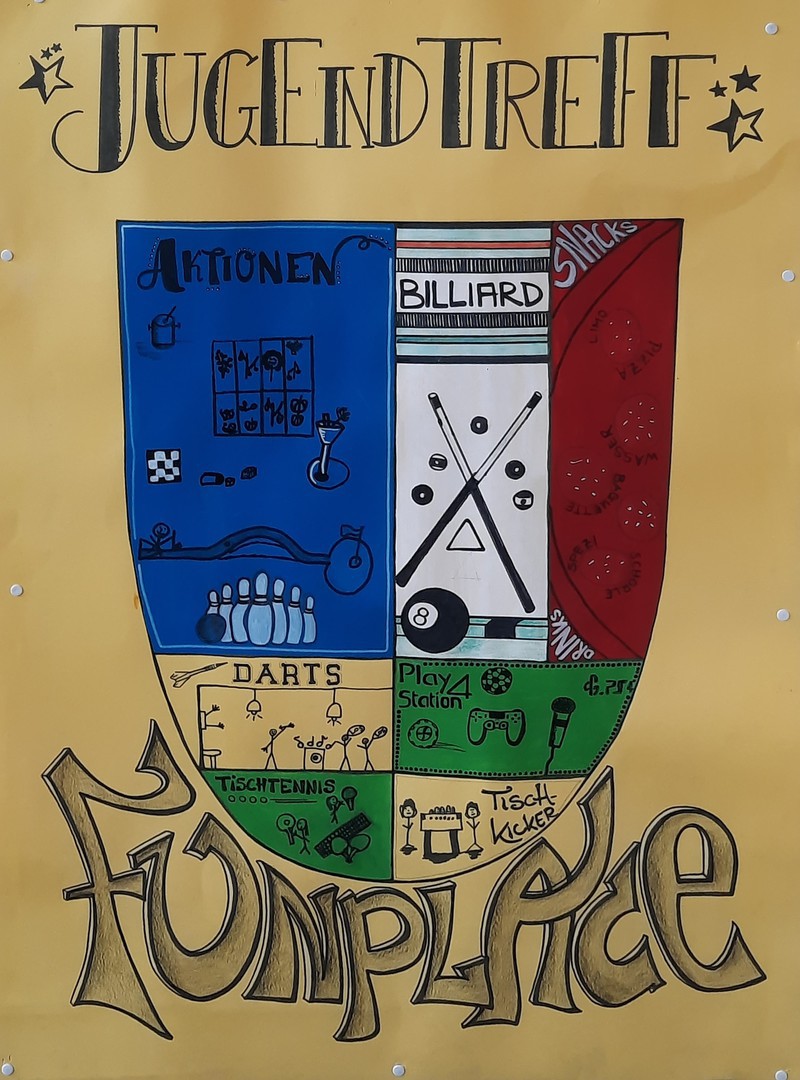 JUGENDTREFF
AKTIONEN
BILLIARD
SNACKS
LIMO
PIZZA
WASSER
BAGUETTE
SCHORLE
DRINKS
8
DARTS
Play
Station 4
TISCHTENNIS
TISCH-
KICKER
FUNPLACE